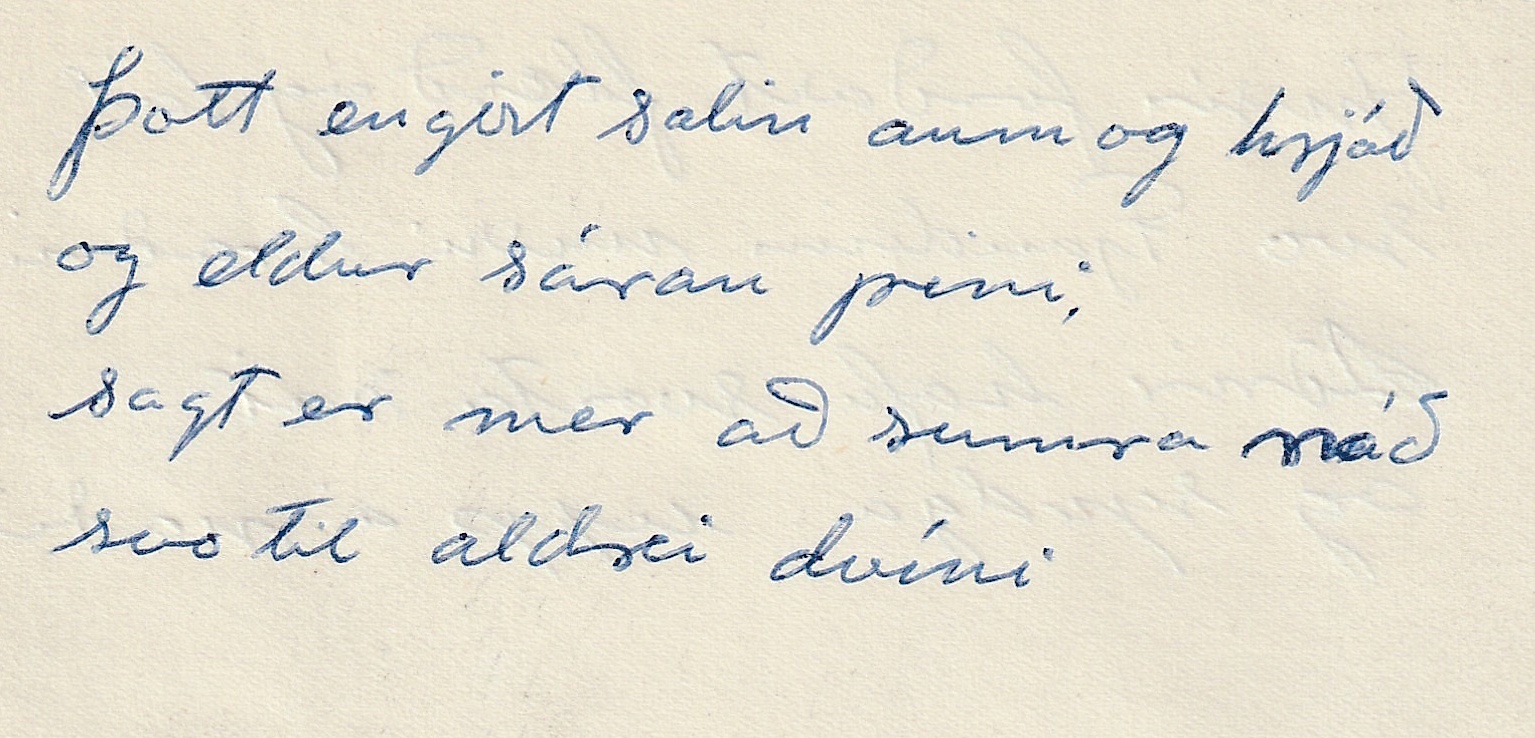 Þott engist salin aum og hrjáð
og eldur sáran pini,
sagt er mer að sumra náð
svo til aldrei dvíni